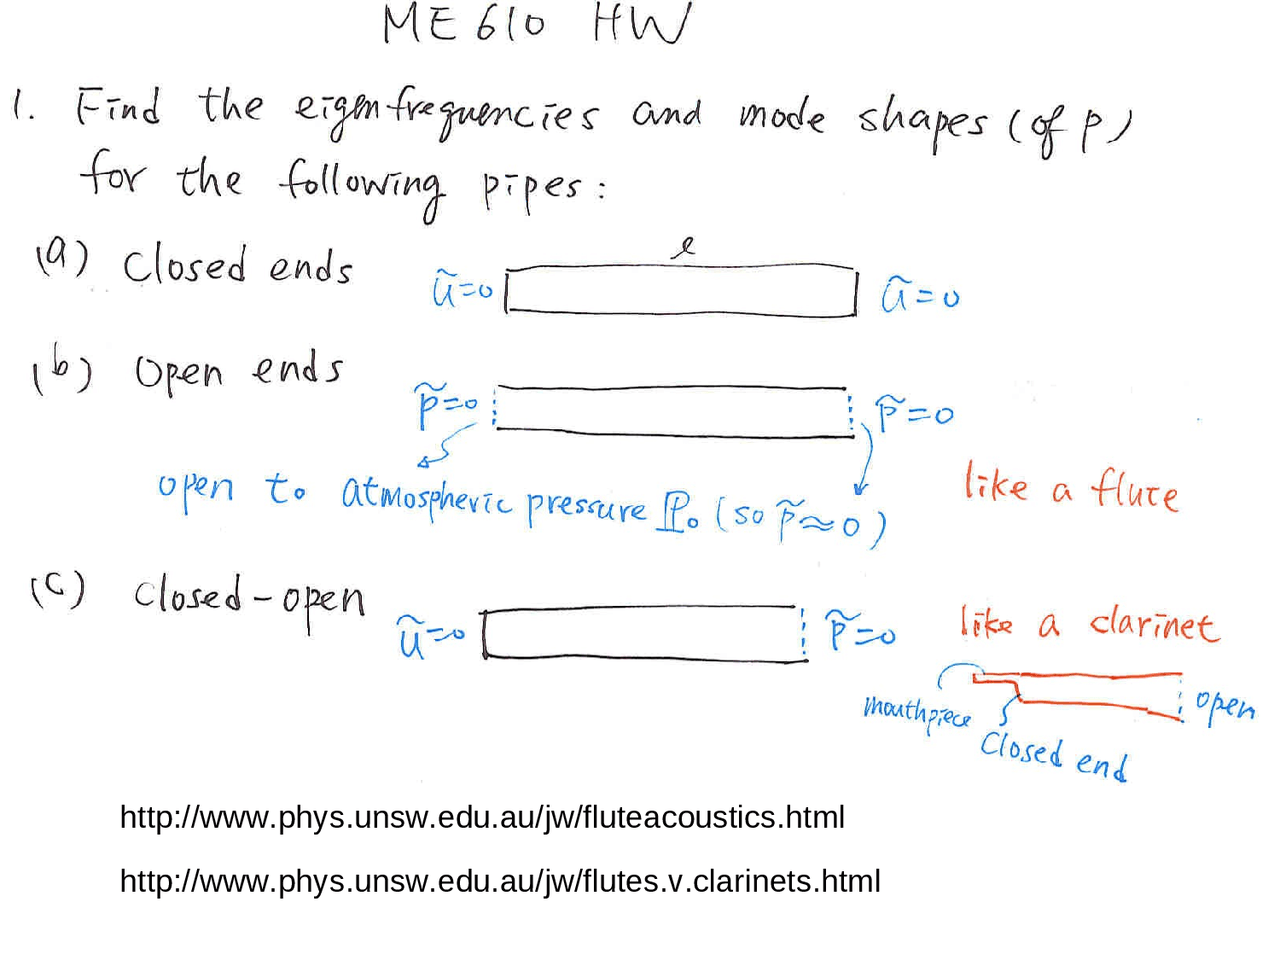 ME 610 HW
1. Find the eigenfrequencies and mode shapes (of p)
for the following pipes:
(a) Closed ends
ℓ
ũ=0
ũ=0
(b) Open ends
p̃=0
p̃=0
open to atmospheric pressure P₀ (so p̃≈0)
like a flute
(c) Closed-open
ũ=0
p̃=0
like a clarinet
mouthpiece
Closed end
open
http://www.phys.unsw.edu.au/jw/fluteacoustics.html
http://www.phys.unsw.edu.au/jw/flutes.v.clarinets.html